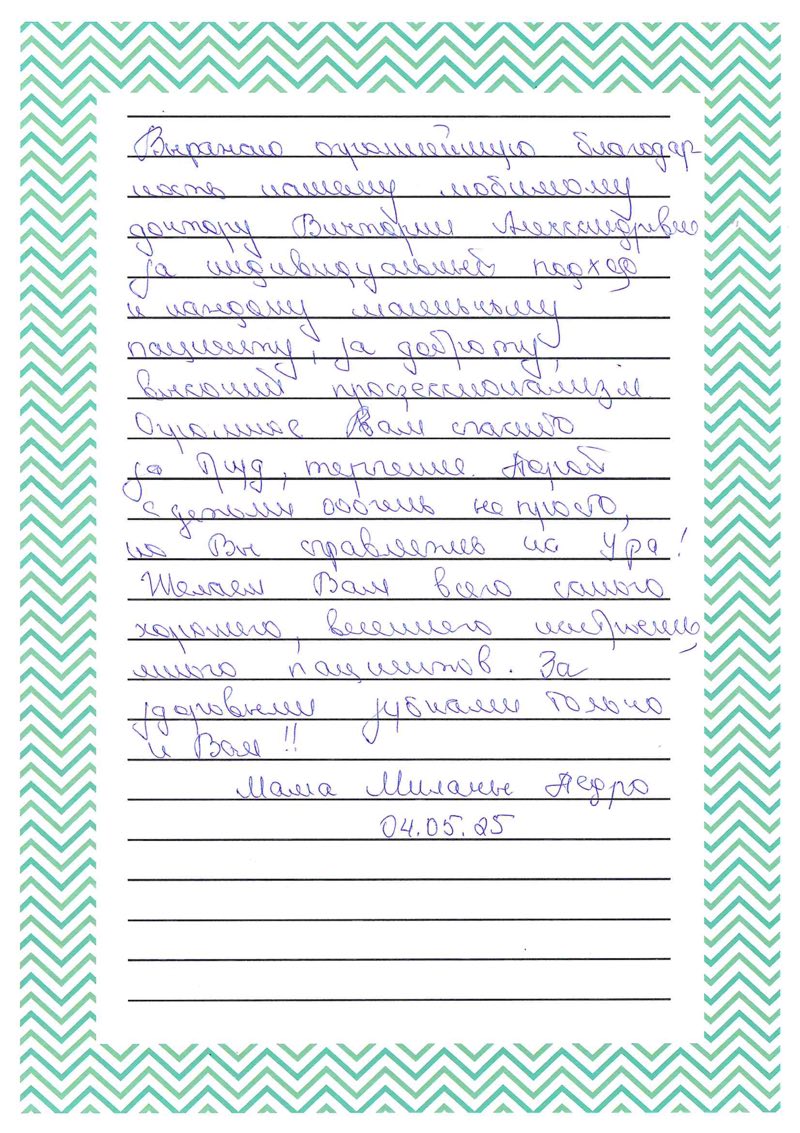 Выражаю огромнейшую благодар-
ность нашему любимому
доктору Виктории Александровне
за индивидуальный подход
к каждому маленькому
пациенту, за доброту,
высокий профессионализм.
Огромное Вам спасибо
за труд, терпение. Порой
с детьми ооочень не просто,
но Вы справляетесь на Ура!
Желаем Вам всего самого
хорошего, весеннего настроения,
много пациентов. За
здоровыми зубками только
к Вам!!
Мама Миланы
04.05.25